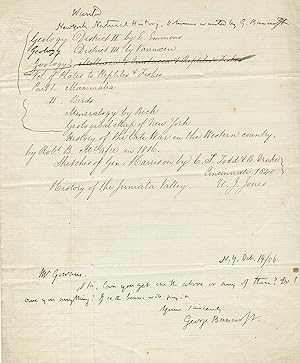 Wanted
New York Natural History, Volumes wanted by G. Bancroft
Geology District II by E. Emmons
Geology District III by Vanuxem
Zoology,
Vol. of Plates to Reptiles & Fishes
Part 1. Mammalia
" II. Birds
Mineralogy by Beck
Geological Map of New York
History of the Late War in the Western country,
by Robt B. McAfee in 1816.
Sketches of Gen. Harrison by C. S. Todd & B. Drake
Cincinnati 1840.
History of the Juniata Valley. U. J. Jones.
N.Y. 
Mr Gowans.
Sir, Can you get me the above or any of them? Do I
owe you anything? If so the bearer will pay it.
Yours sincerely
George Bancroft